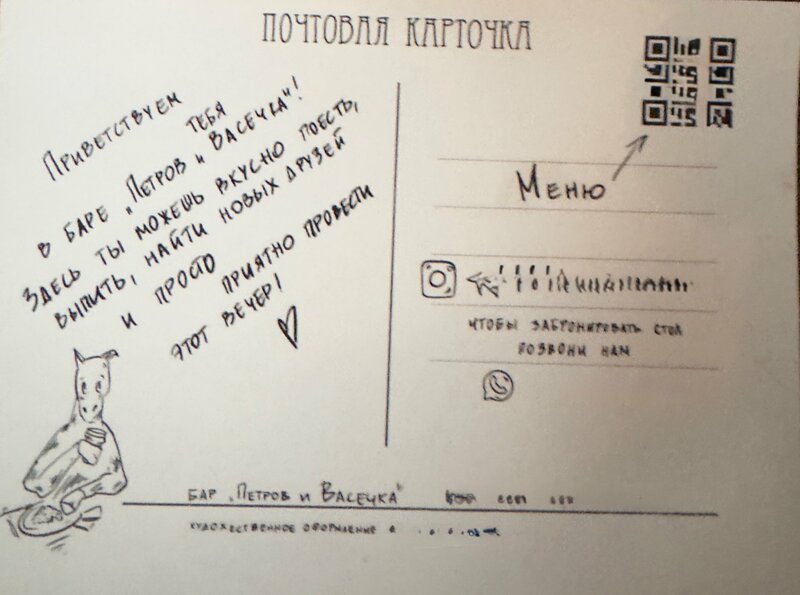 ПОЧТОВАЯ КАРТОЧКА
ПРИВЕТСТВУЕМ
ТЕБЯ
В БАРЕ „ПЕТРОВ И ВАСЕЧКА"!
ЗДЕСЬ ТЫ МОЖЕШЬ ВКУСНО ПОЕСТЬ,
ВЫПИТЬ, НАЙТИ НОВЫХ ДРУЗЕЙ
И ПРОСТО ПРИЯТНО ПРОВЕСТИ
ЭТОТ ВЕЧЕР!
МЕНЮ
ЧТОБЫ ЗАБРОНИРОВАТЬ СТОЛ
ПОЗВОНИ НАМ
БАР „ПЕТРОВ И ВАСЕЧКА"
ХУДОЖЕСТВЕННОЕ ОФОРМЛЕНИЕ